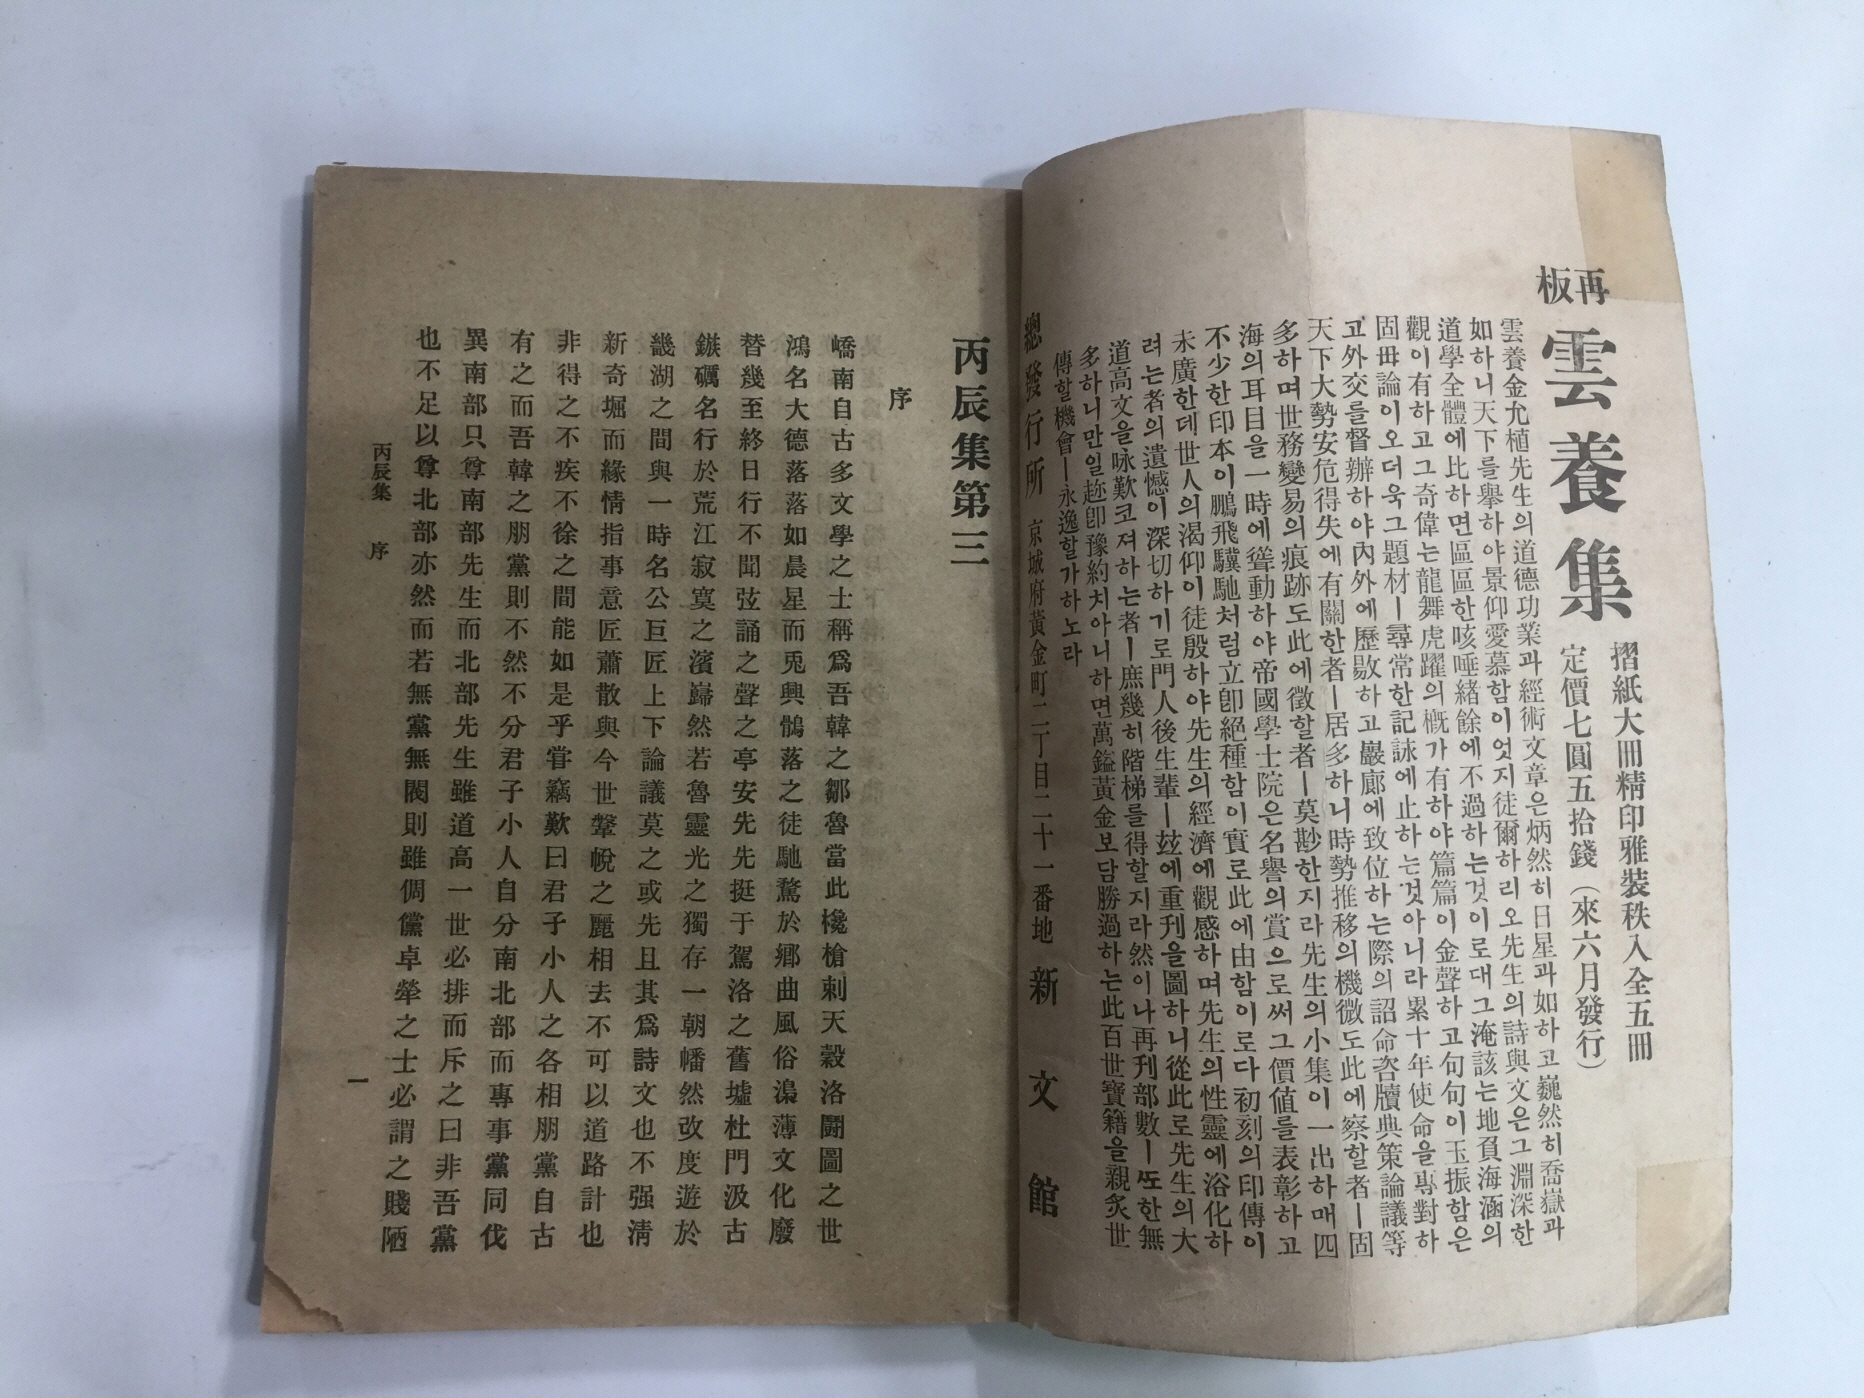 再板
雲養集
摺紙大冊精印雅裝秩入全五冊
定價七圓五拾錢(來六月發行)
雲養金允植先生의道德功業과經術文章은炳然히日星과如하고巍然히喬嶽과
如하니天下를擧하야景仰愛慕함이엇지徒爾하리오先生의詩與文은그淵深한
道學全體에比하면區區한咳唾緖餘에不過하는것이로대그淹該는地負海涵의
觀이有하고그奇偉는龍舞虎躍의槪가有하야篇篇이金聲하고句句이玉振함은
固毋論이오더욱그題材ㅣ尋常한記詠에止하는것아니라累十年使命을專對하
고外交를督辦하야內外에歷敭하고巖廊에致位하는際의詔命咨牘典策論議等
天下大勢安危得失에有關한者ㅣ居多하니時勢推移의機微도此에察할者ㅣ固
多하며世務變易의痕跡도此에徵할者ㅣ莫尠한지라先生의小集이一出하매四
海의耳目을一時에聳動하야帝國學士院은名譽의賞으로써그價値를表彰하고
不少한印本이鵬飛驥馳처럼立卽絕種함이實로此에由함이로다初刻의印傳이
未廣한데世人의渴仰이徒殷하야先生의經濟에觀感하며先生의性靈에浴化하
려는者의遺憾이深切하기로門人後生輩ㅣ玆에重刊을圖하니從此로先生의大
道高文을咏歎코져하는者ㅣ庶幾히階梯를得할지라然이나再刊部數ㅣ또한無
多하니만일趂卽豫約치아니하면萬鎰黃金보담勝過하는此百世寶籍을親炙世
傳할機會ㅣ永逸할가하노라
總發行所 京城府黃金町二丁目二十一番地 新文館
丙辰集第三
序
嶠南自古多文學之士稱爲吾韓之鄒魯當此欃槍刺天穀洛鬪圖之世
鴻名大德落落如晨星而兎興鶻落之徒馳騖於鄉曲風俗澆薄文化廢
替幾至終日行不聞弦誦之聲之亭安先先挺于駕洛之舊墟杜門汲古
鏃礪名行於荒江寂寞之濱巋然若魯靈光之獨存一朝幡然改度遊於
畿湖之間與一時名公巨匠上下論議莫之或先且其爲詩文也不强淸
新奇堀而緣情指事意匠蕭散與今世鞶帨之麗相去不可以道路計也
非得之不疾不徐之間能如是乎甞竊歎曰君子小人之各相朋黨自古
有之而吾韓之朋黨則不然不分君子小人自分南北部而專事黨同伐
異南部只尊南部先生而北部先生雖道高一世必排而斥之曰非吾黨
也不足以尊北部亦然而若無黨無閥則雖倜儻卓犖之士必謂之賤陋
丙辰集 序
一